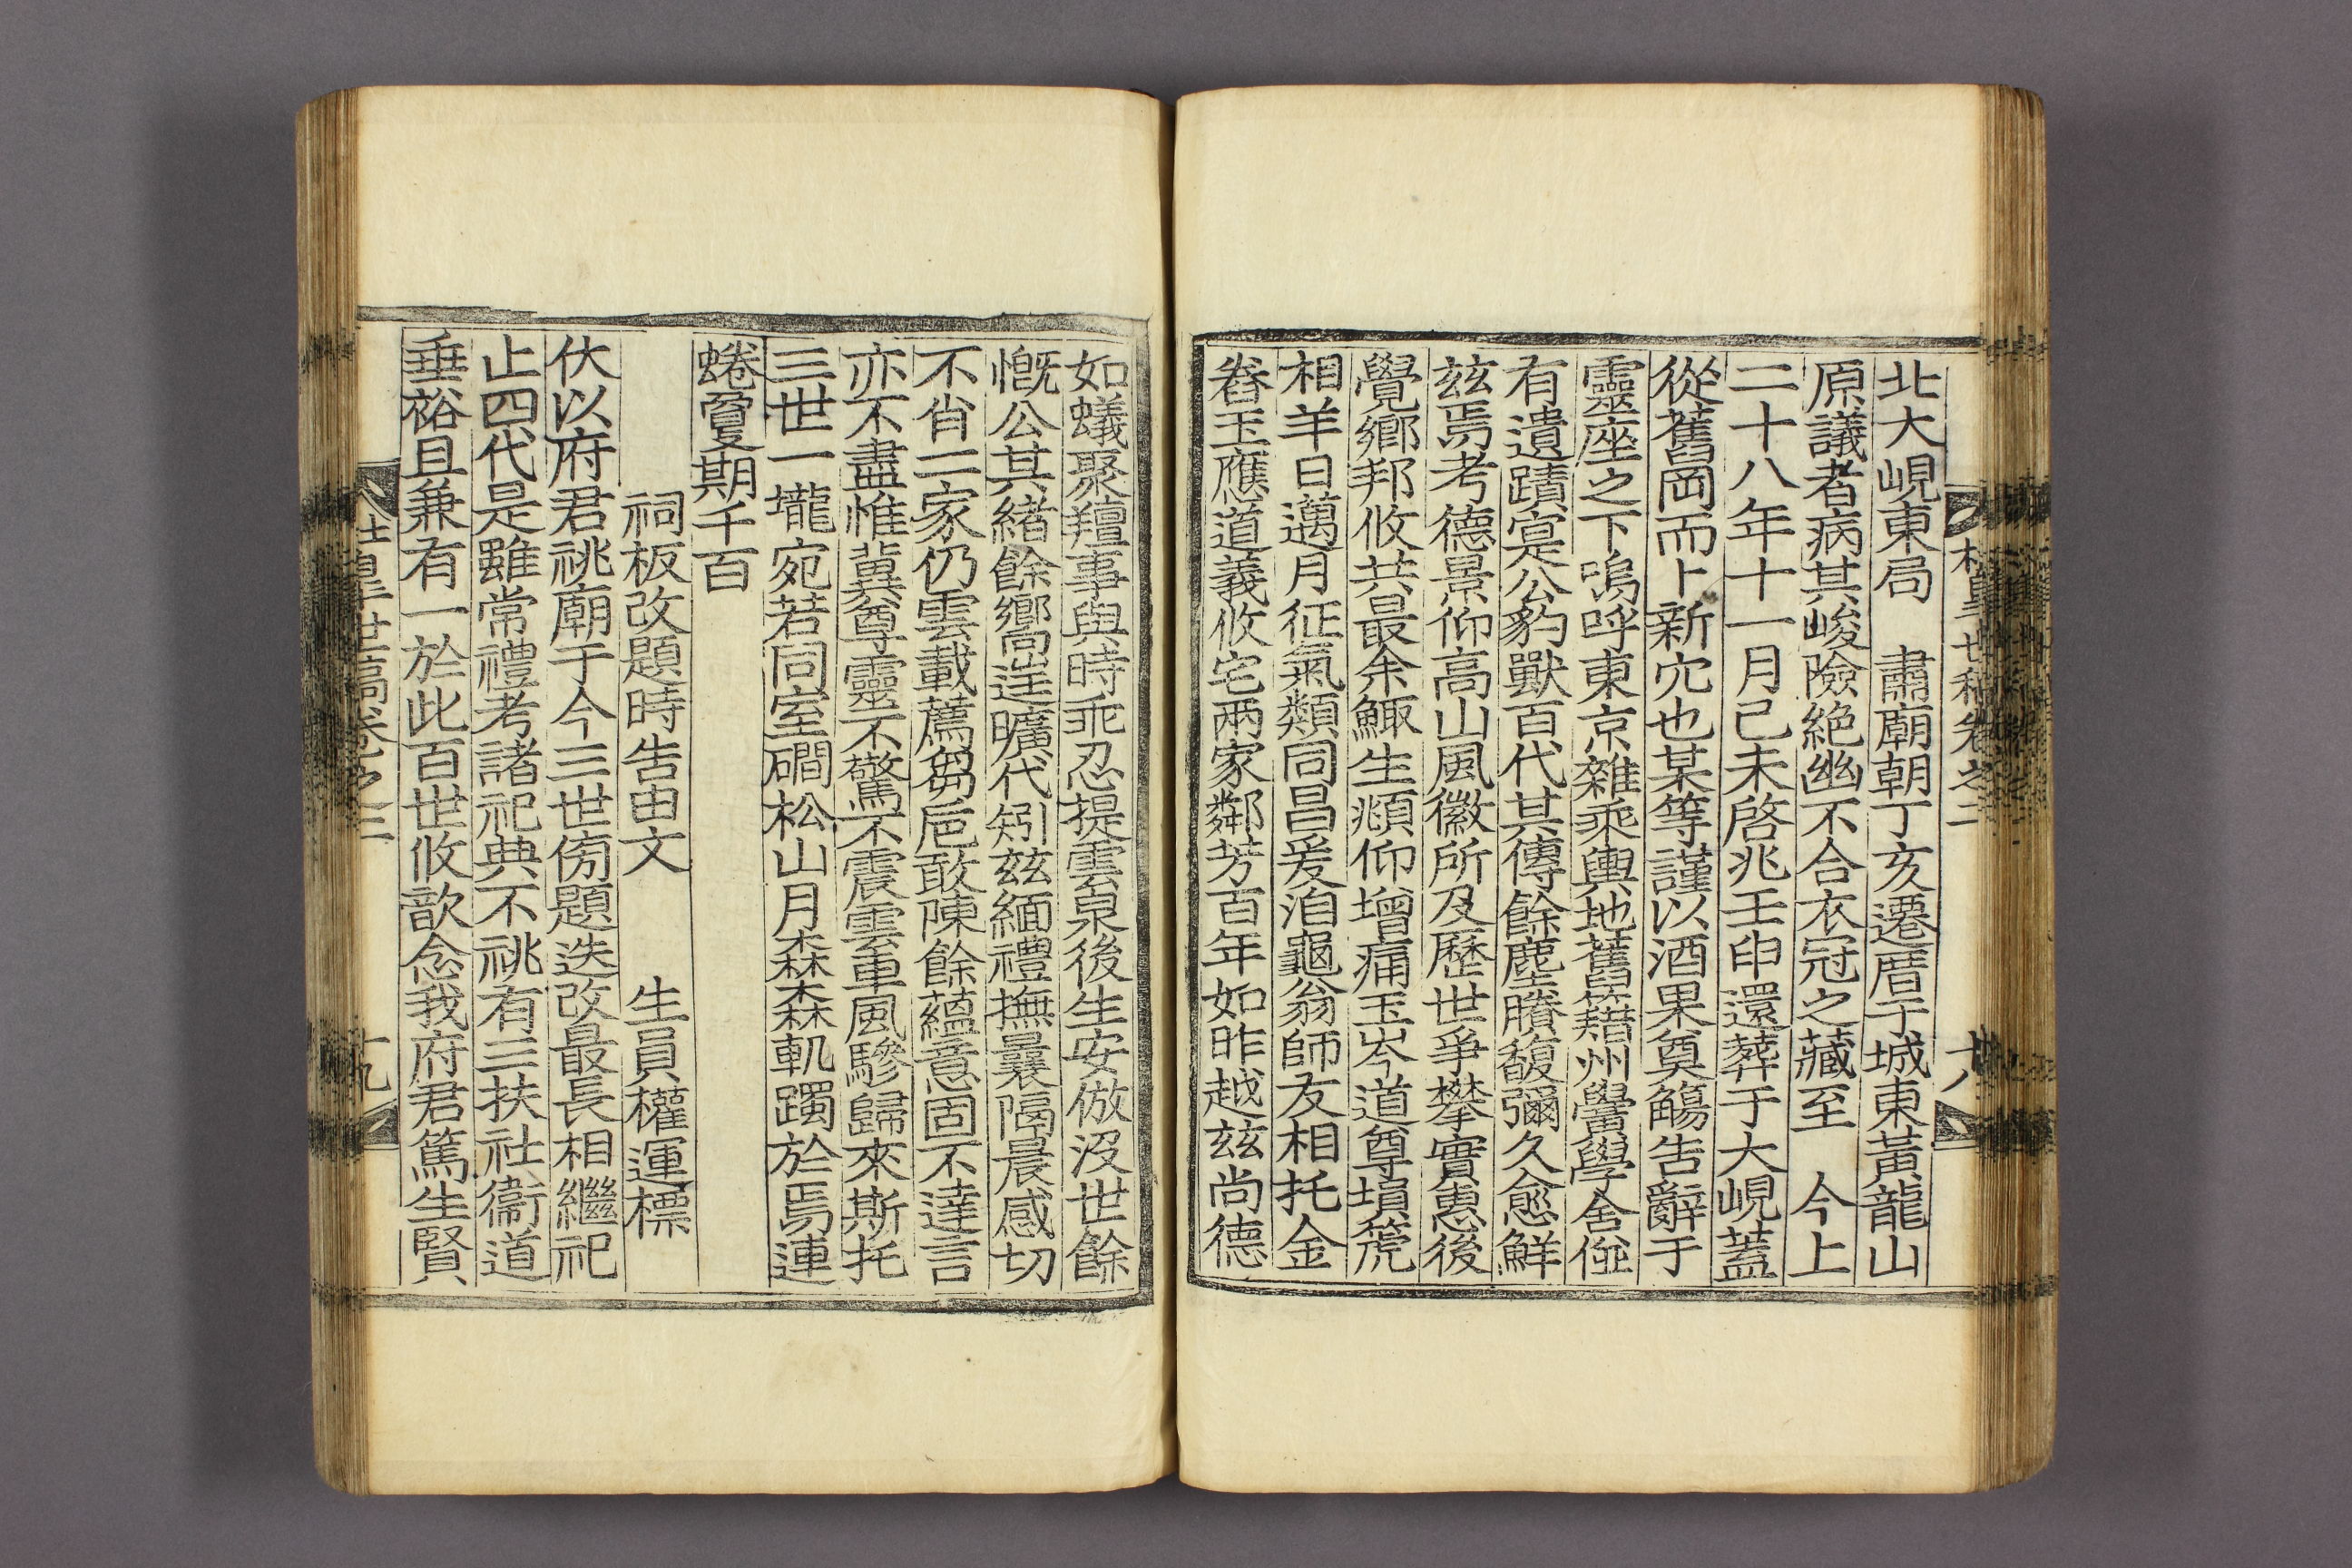 北大峴東局 肅廟朝丁亥遷厝于城東黃龍山
原議者病其峻險絶幽不合衣冠之藏至 今上
二十八年十一月己未啓兆壬申還葬于大峴蓋
從舊岡而卜新穴也某等謹以酒果奠觴告辭于
靈座之下嗚呼東京雜乘輿地舊籍州黌學舍俓
有遺蹟寔公豹獸百代其傳餘塵賸馥彌久愈鮮
玆焉考德景仰高山風徽所及歷世爭攀實惠後
覺鄕邦攸共最余鯫生頫仰增痛玉岑道尊塤篪
相羊日邁月征氣類同昌爰洎龜翁師友相托金
眷玉應道義攸宅兩家鄰芳百年如昨越玆尚德
如蟻聚羶事與時乖忍提雲泉後生安倣沒世餘
慨公其緖餘嚮遑曠代矧玆緬禮撫曩隔晨感切
不肖二家仍雲載薦芻巵敢陳餘蘊意固不達言
亦不盡惟冀尊靈不驚不震雲車風驂歸來斯托
三世一壠宛若同室磵松山月森森軏躅於焉連
蜷夐期千百
祠板改題時告由文 生員權運標
伏以府君祧廟于今三世傍題迭改最長相繼祀
止四代是雖常禮考諸祀典不祧有三扶社衛道
垂裕且兼有一於此百世攸歆念我府君篤生賢